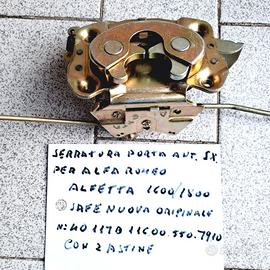 SERRATURA PORTA ANT. SX.
PER ALFA ROMEO
ALFETTA 1600/1800
SAFE NUOVA ORIGINALE
N: 40 117B 11600.550.7910
CON 2 ASTINE